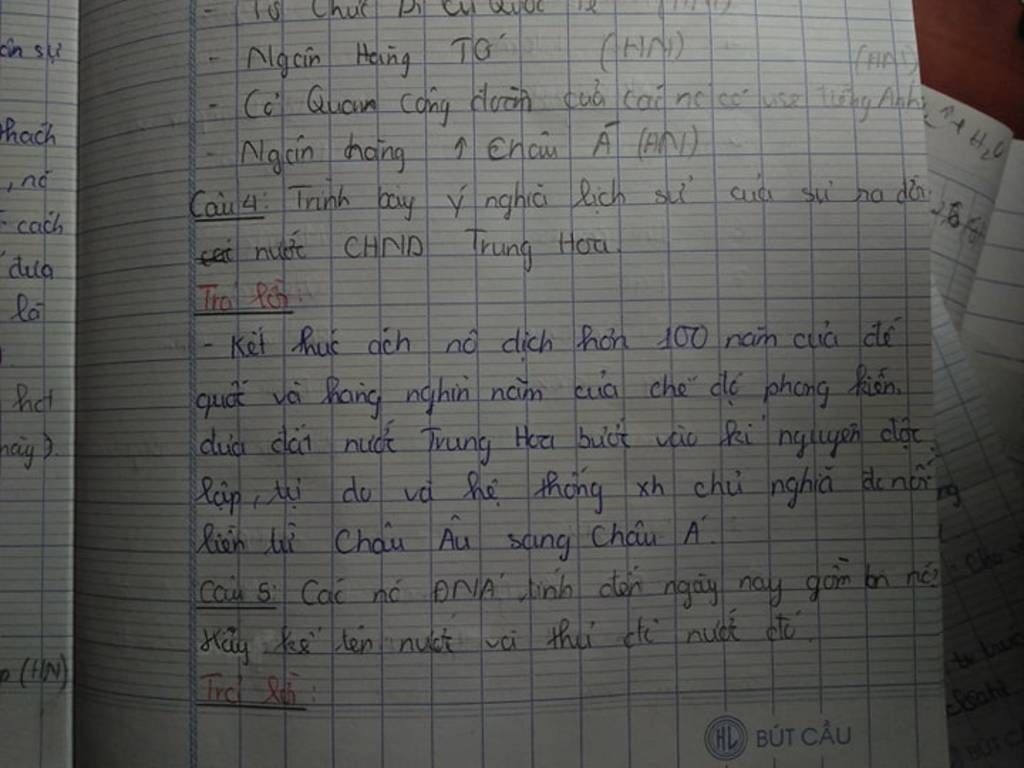 - Tổ Chức Di Cư Quốc Tế
- Ngân Hàng TG (HN)
- Cơ Quan cộng đoàn của các nc có use tiếng Anh (HN)
- Ngân hàng ↑ Châu Á (HN)
Câu 4: Trình bày ý nghĩa lịch sử của sự ra đời
nước CHND Trung Hoa.
Trả lời:
- Kết thúc ách nô dịch hơn 100 năm của đế
quốc và hàng nghìn năm của chế độ phong kiến.
đưa đất nước Trung Hoa bước vào kỉ nguyên độc
lập, tự do và hệ thống xh chủ nghĩa đc nối
liền từ Châu Âu sang Châu Á.
Câu 5: Các nc ĐNÁ tính đến ngày nay gồm bn nc?
Hãy kể tên nước và thủ đô nước đó.
Trả lời:
HL BÚT CẦU
ân sự
thách
, nó
cách
đưa
là
này).
(HN)
+ H₂O